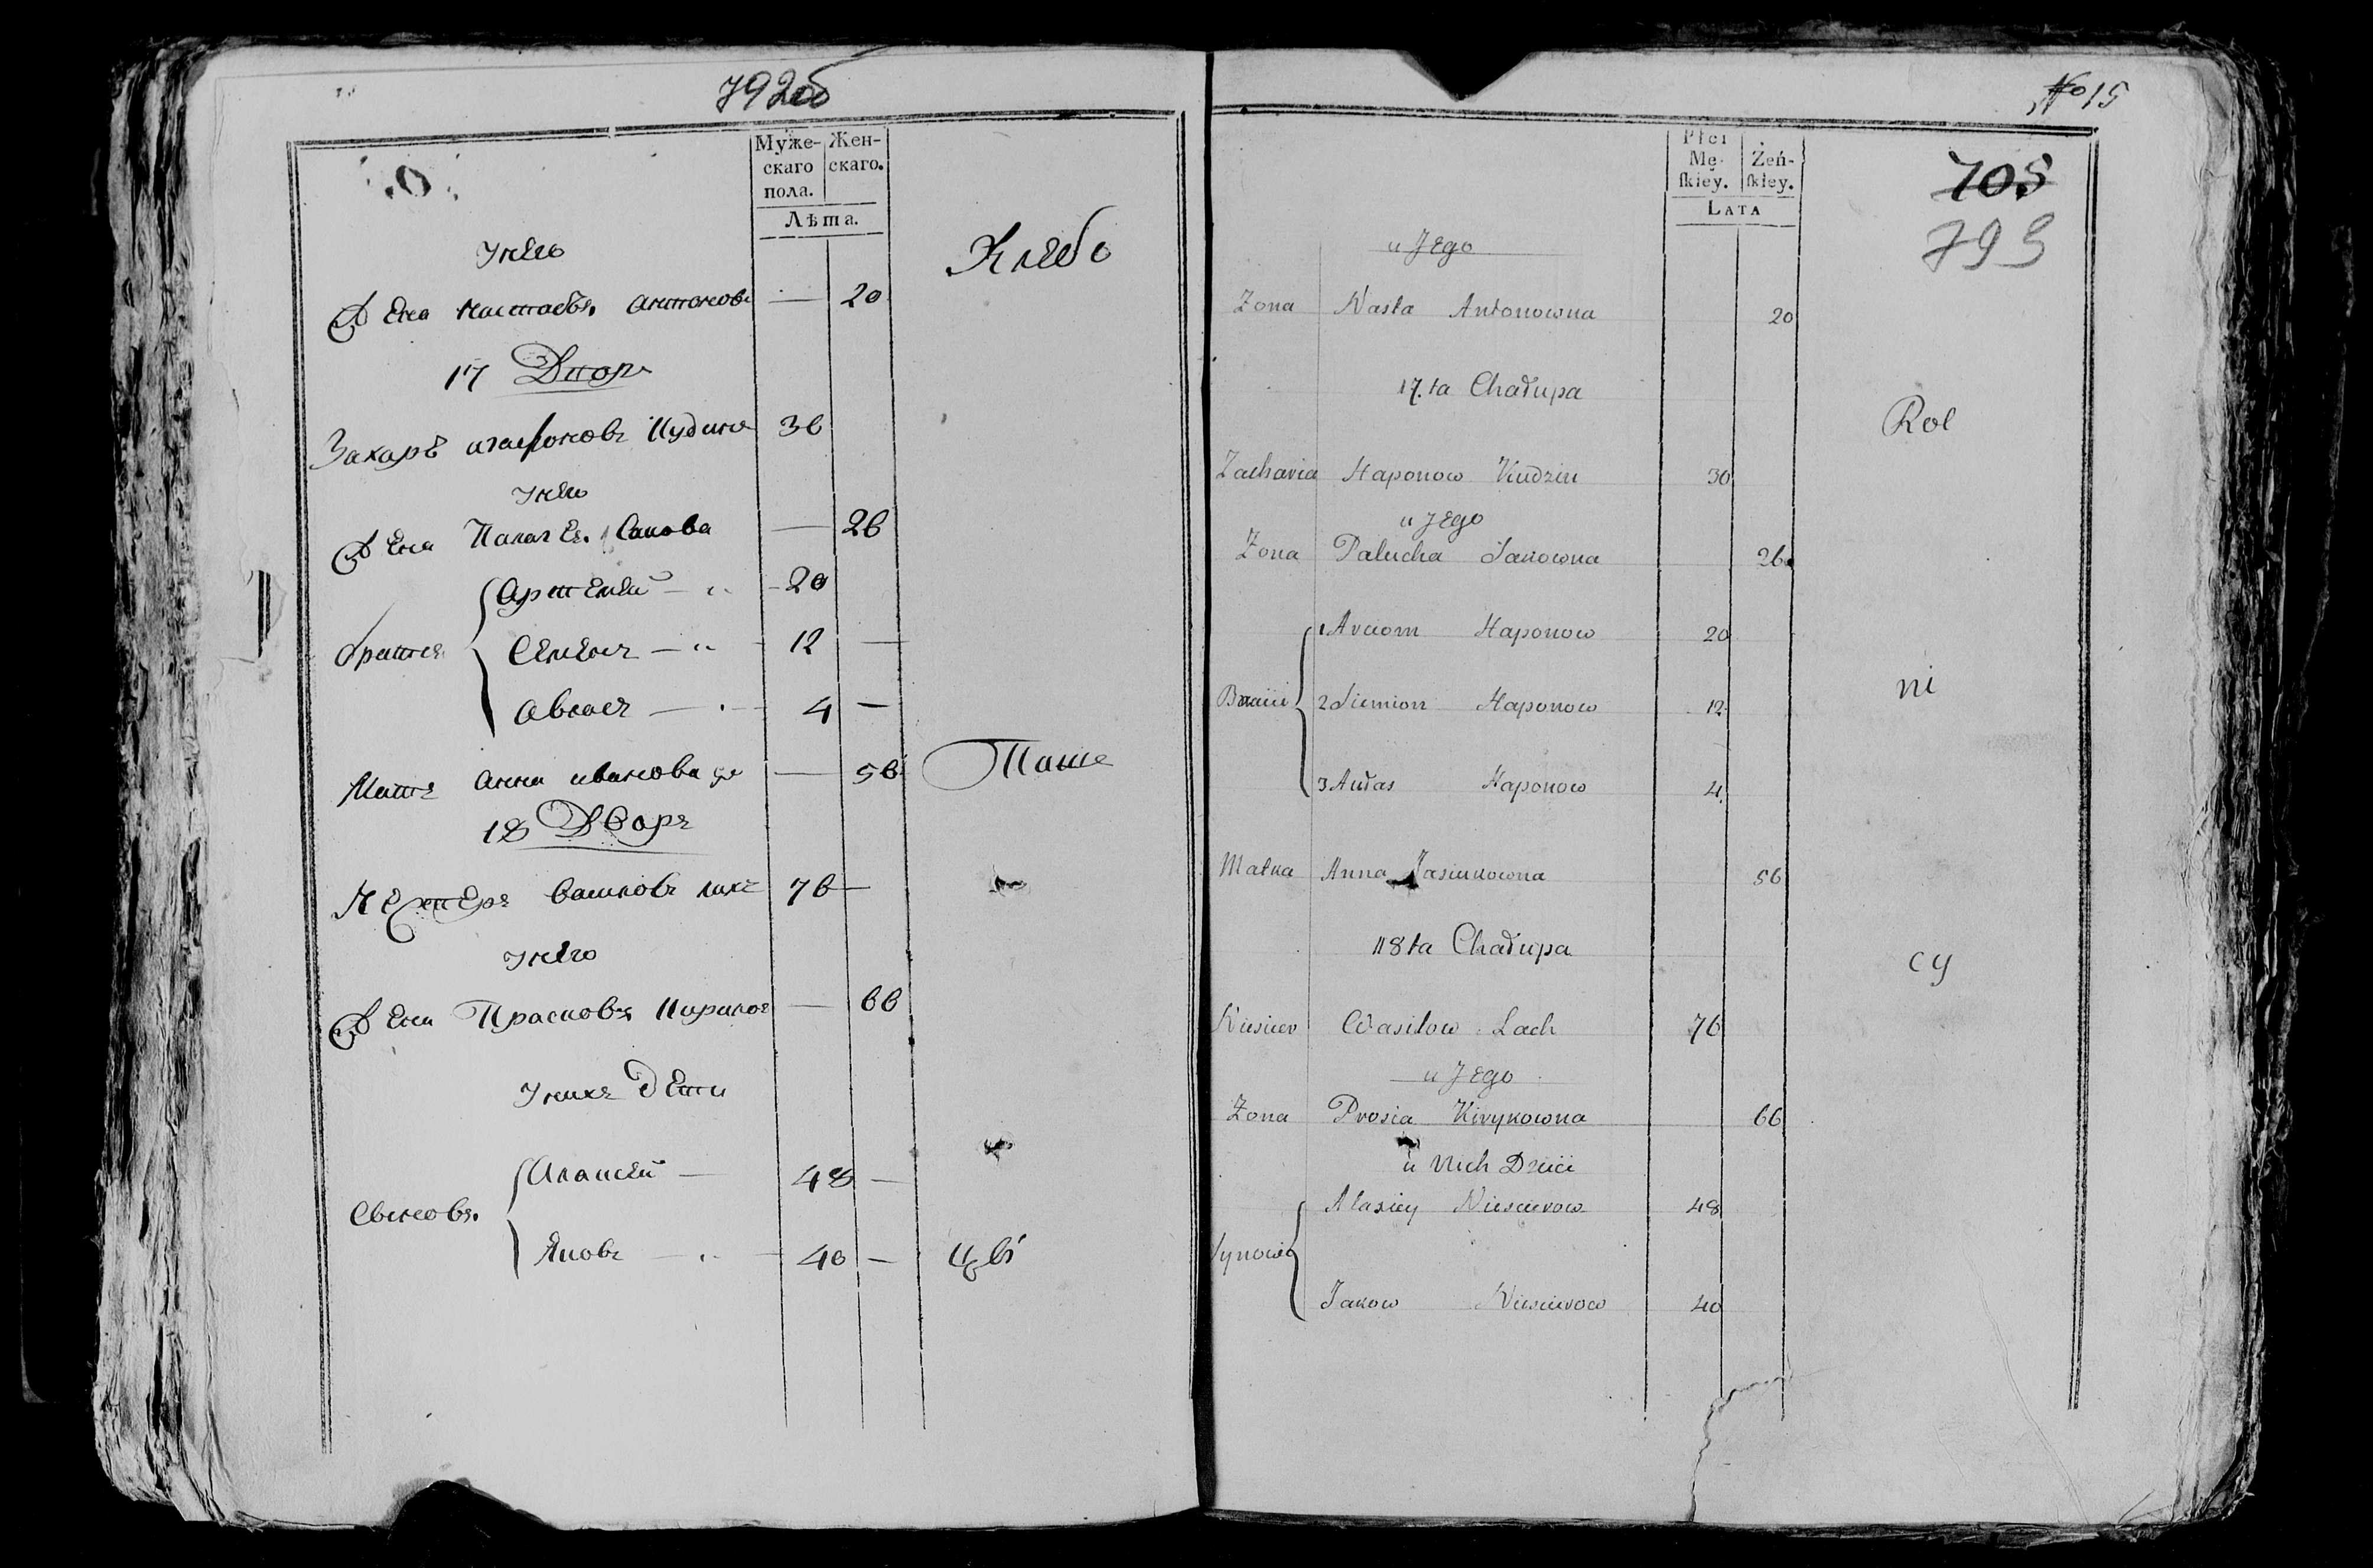 792об
Муже-
скаго
пола.
Жен-
скаго.
Лѣта.
Унево
Жена Настасья Антонова — 20
Хлебо
17 Двор
Захаръ Агафоновъ Кудинъ 36
Унево
Жена Палагея Сакова — 26
братья
Артемей — 20
Семенъ — 12 —
Авласъ — 4 —
Мать Анна Иванова — 56
Паше
18 Дворъ
Нестеръ Васильовъ 76 —
Унево
Жена Прасковья — 66
Унихъ Дети
Сыновья
Алексей — 48 —
Яковъ — 40 —
цы
№ 15
Płci
Mę-
ſkiey.
Żeń-
ſkiey.
LATA
708
793
u Jego
Zona Nasta Antonowna 20
17.ta Chałupa
Rol
Zacharia Haponow Kudzin 30
u Jego
Zona Palucha Sakowna 26
Bracia
1 Arciom Haponow 20
2 Siemion Haponow 12
ni
3 Aułas Haponow 4
Matka Anna Jasiukowna 56
118ta Chałupa
cy
Niescier Wasilow Lach 76
u Jego
Zona Prosia Kirykowna 66
u Nich Dzieci
Synowie
Alasiey Niescierow 48
Jakow Niescierow 40